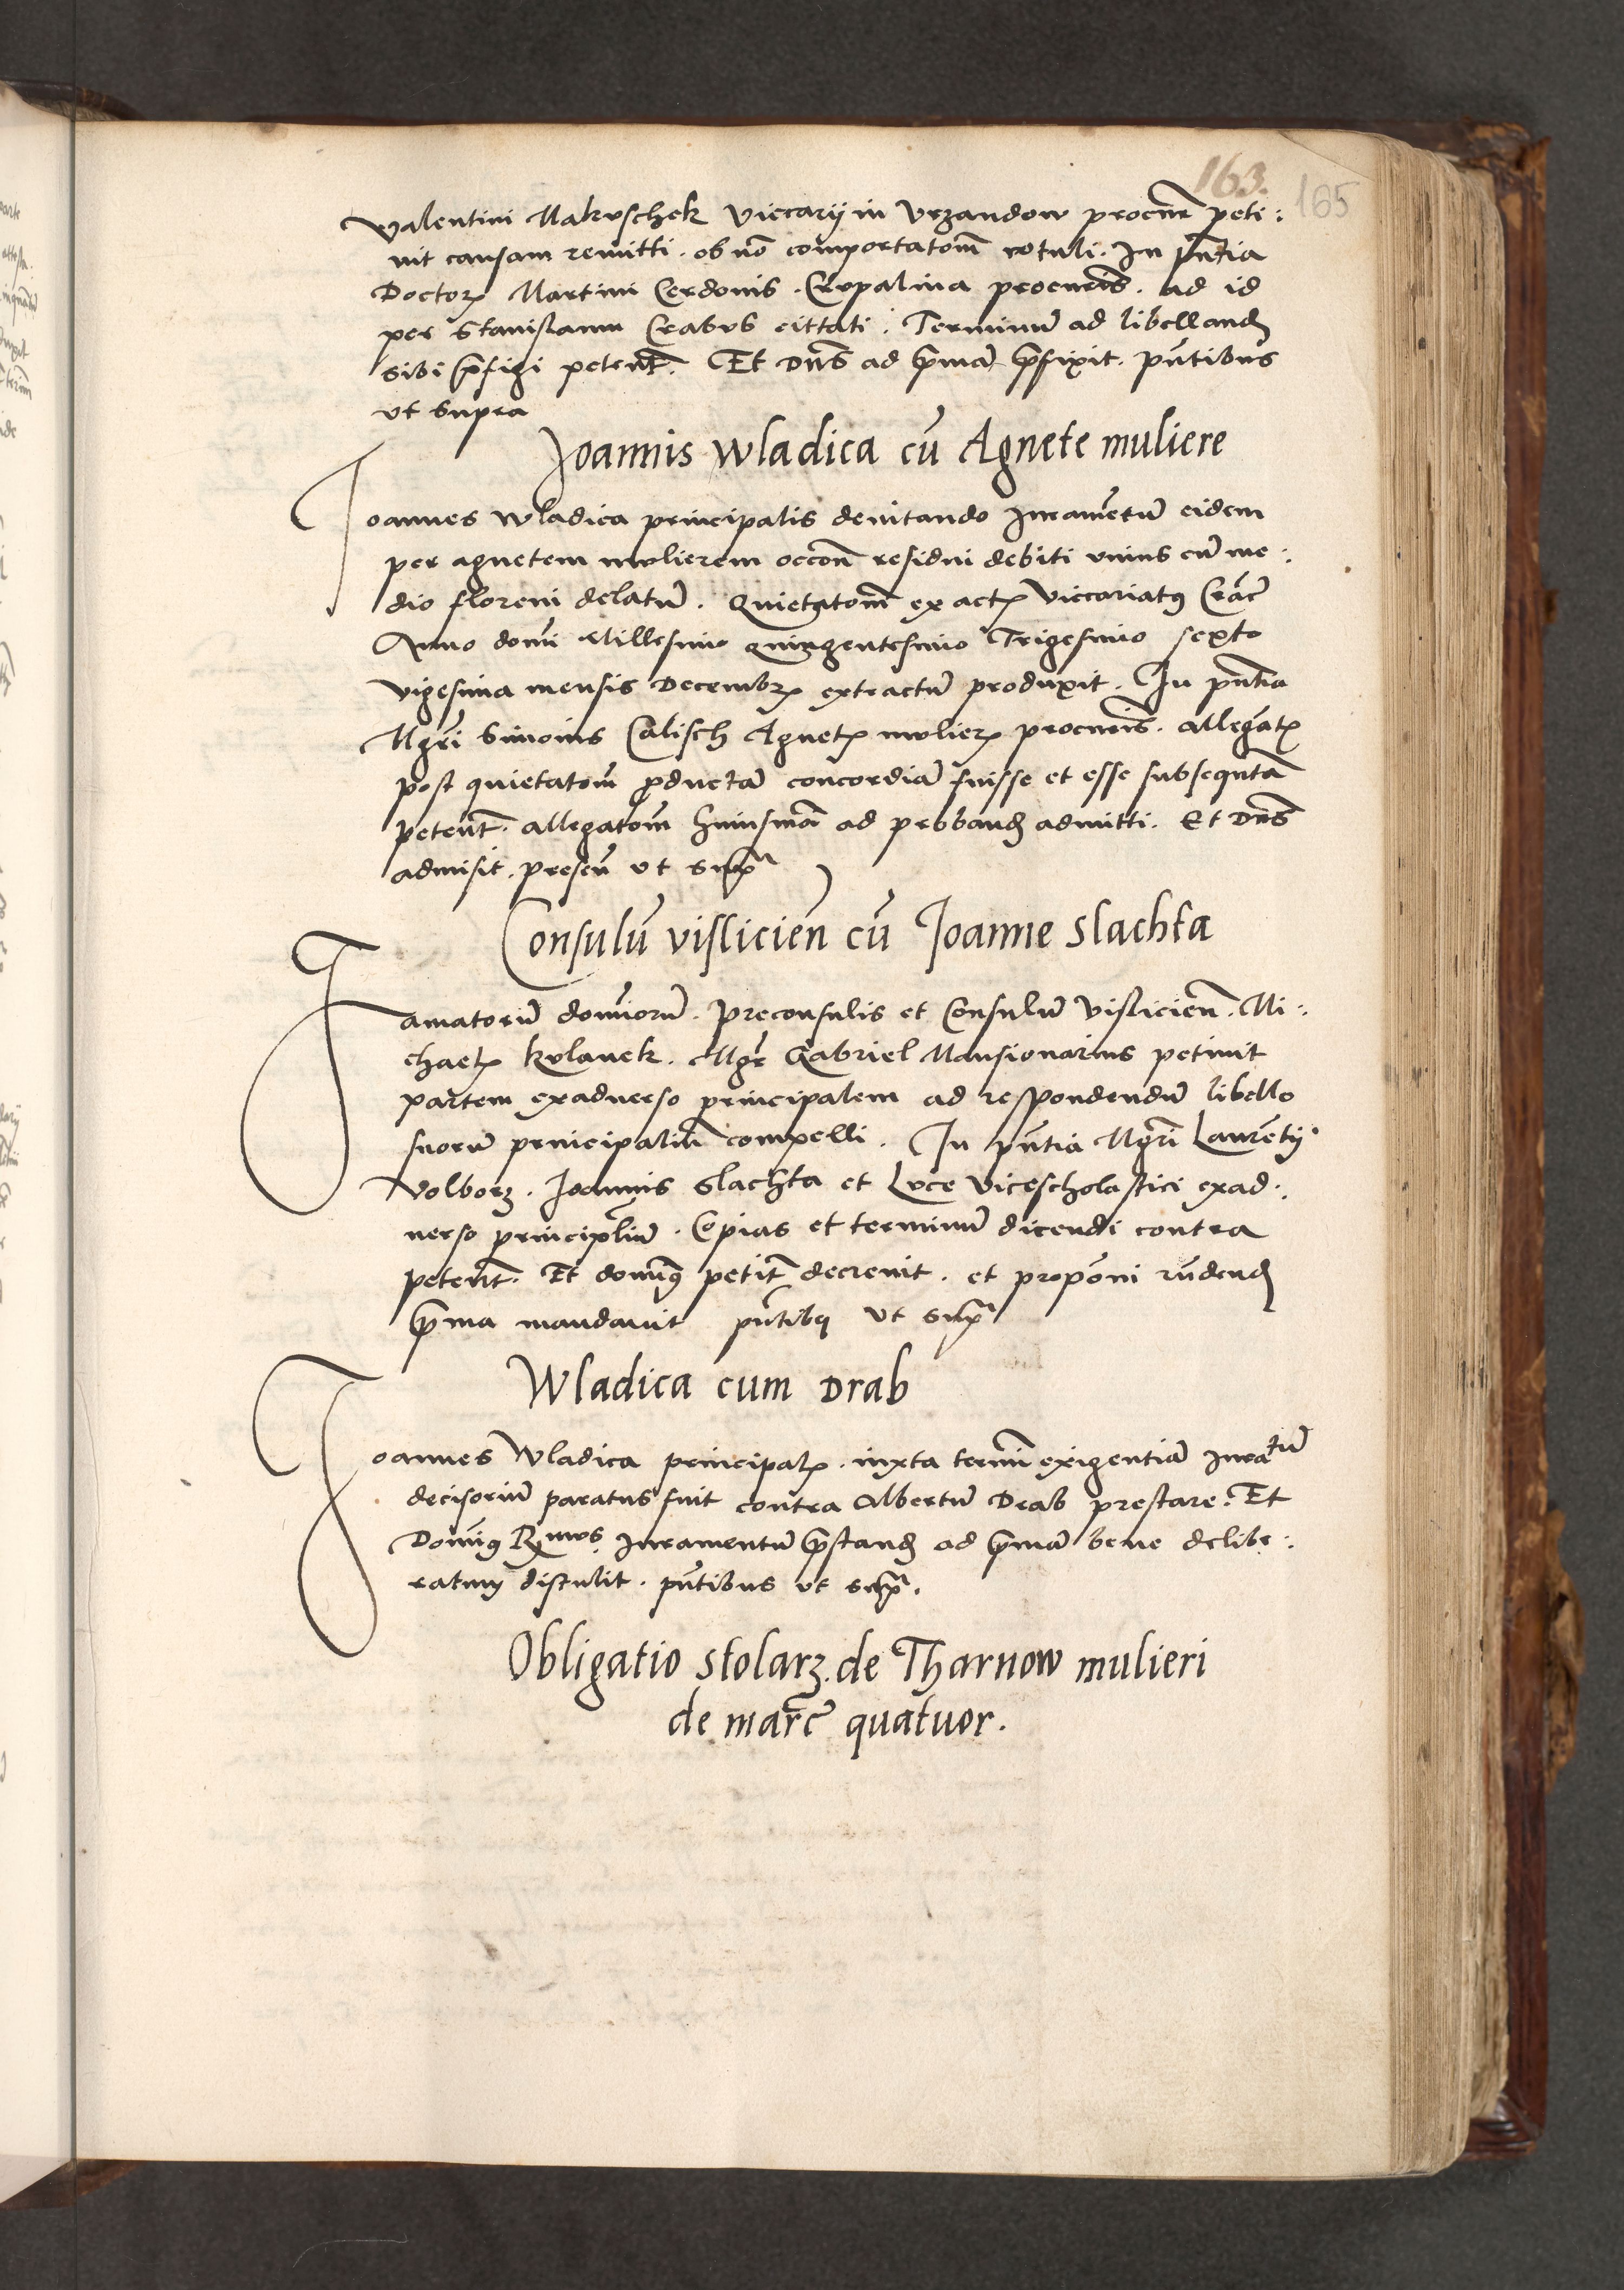 163. 165
Valentini Makuschek Viccarij in Vrzandow procur̄ peti:
uit causam remitti. ob nō comportatoīm rotuli. In pn̄tia
Doctorꝭ Martini Cerdonis. Crupalina procur̄is. ad id
per Stanislaum Crabus cittati. Terminū ad libellandꝭ
sibi p̄figi peten̄t. Et Dn̄s ad p̄imā p̄fixit. pn̄tibus
vt supra
Joannis Wladica cū Agnete muliere
Joannes Wladica principalis deuitando Juramētū eidem
per agnetem mulierem occoīn residui debiti vnius cū me:
dio floreni delatū. Quietatoīm ex actꝭ Viccariatꝰ Crac̄
Anno domī Millesimo quingentesimo Trigesimo sexto
vigesima mensis Decembrꝭ extractū produxit. In pn̄tia
Mgr̄i Simonis Calisch Agnetꝭ mulierꝭ procur̄is. allegātꝭ
post quietatoīm ꝓductā concordiā fuisse et esse subsequtā
peten̄t. allegatoīm huiusmōi ad probandꝭ admitti. Et Dn̄s
admisit. presen̄ vt supᵃ
Consulū vislicien̄ cū Joanne Slachta
Famatoriū dominorū. Preconsulis et Consulū Vislicien̄. Mi:
chaelꝭ Kulanek. Mgr̄ Gabriel Mansionarius petiuit
partem exaduerso principalem ad respondendū libello
suorū principaliū compelli. In pn̄tia Mgr̄i Laurētij
Wolborz. Joannis Slachta et Luce Vicescholastici exad:
uerso principaliū. Copias et terminū dicendi contra
peten̄t. Et domiꝰ petit̄ decreuit. et proponi rn̄dendꝭ
p̄ima mandauit pn̄tibꝫ vt supᵃ
Wladica cum Drab
Joannes Wladica principalꝭ. iuxta termī exigentiā Juraᵗū
decisoriū paratus fuit contra Albertū Drab prestare. Et
Domiꝰ Rꝭmus Juramentū p̄standꝭ ad p̄imā bene delibe:
ratuꝫ distulit. pn̄tibus vt supᵃ.
Obligatio Stolarz. de Tharnow mulieri
de marc̄ quatuor.